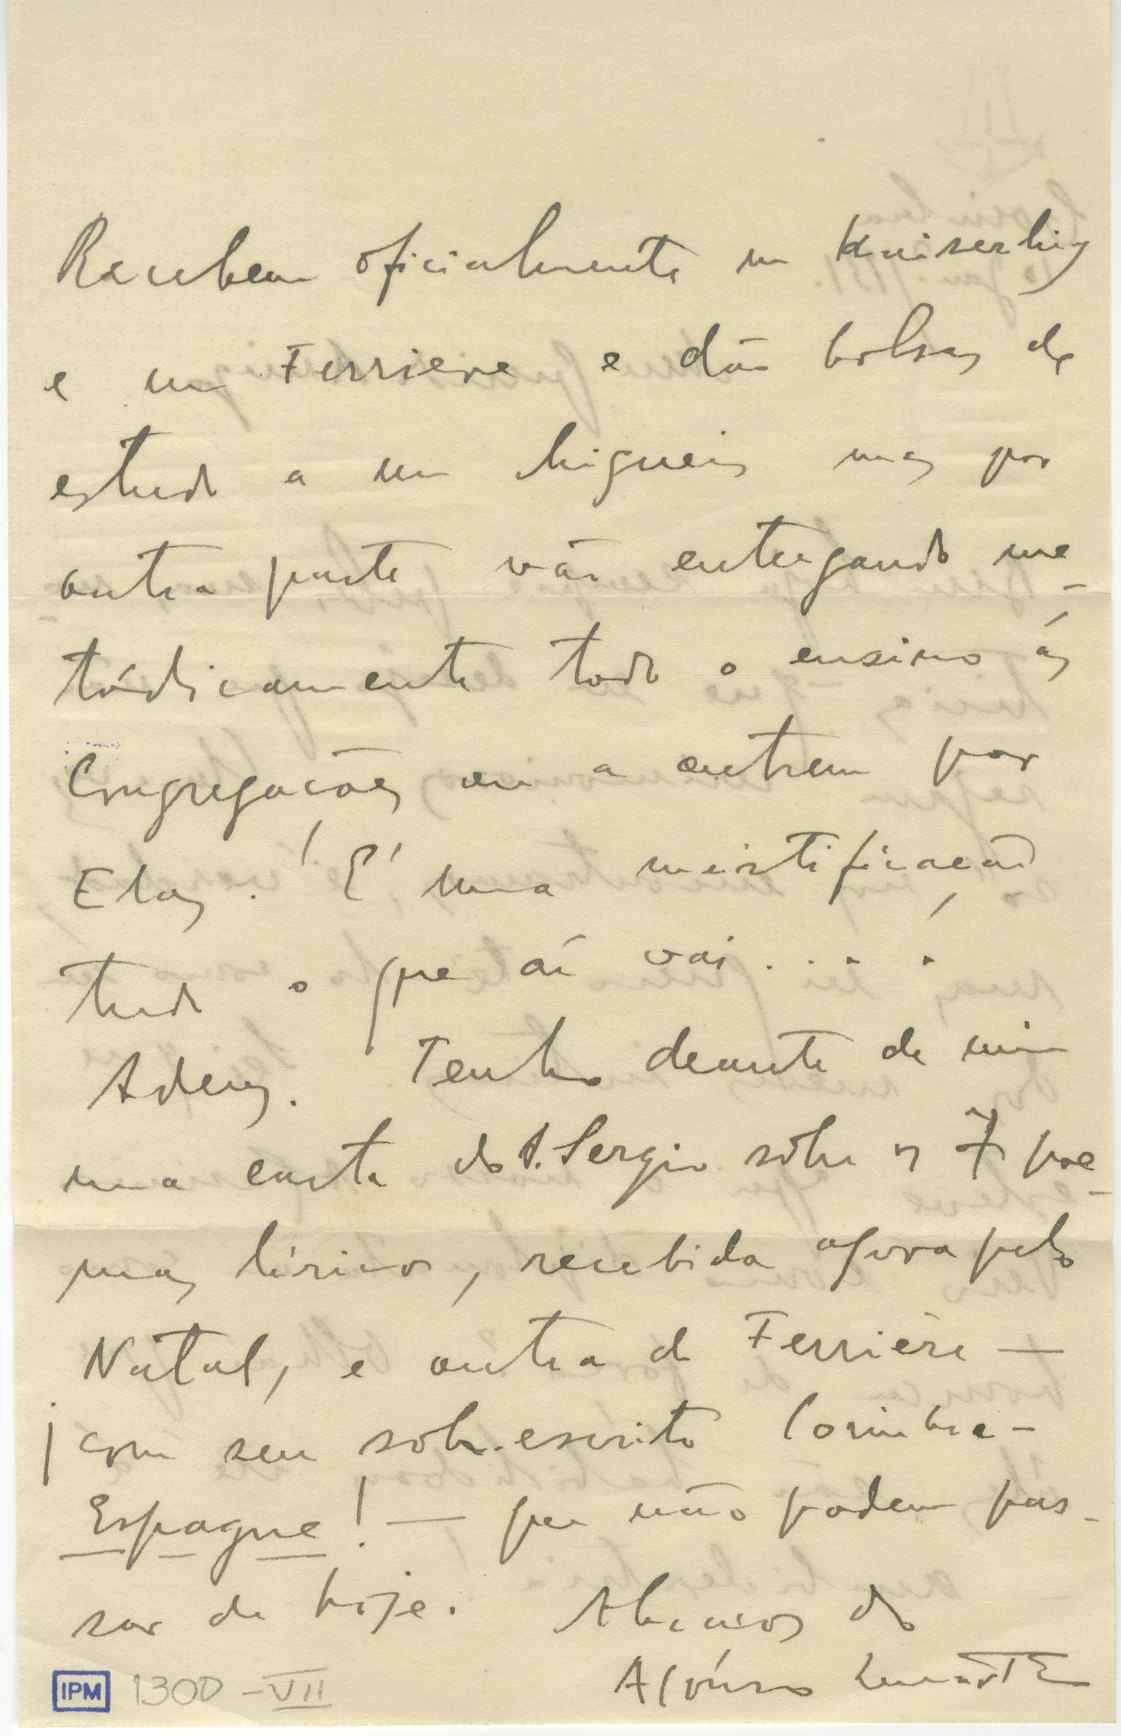 Recebem oficialmente um Kaiserling
e um Ferriere e dão bolsas de
estudo a um Migueis mas por
outra parte vão entregando me-
tódicamente todo o ensino ás
Congregações ou a outrem por
Elas! É uma mistificação
tudo o que aí vai....
Adeus. Tenho deante de mim
uma carta do A. Sergio sôbre os 7 poe-
mas líricos, recebida agora pelo
Natal, e outra de Ferrière —
¡com seu sobrescrito Coimbra-
Espagne! — que não podem pas-
sar de hoje. Abraços do
Afonso Duarte
IPM 1300-VII